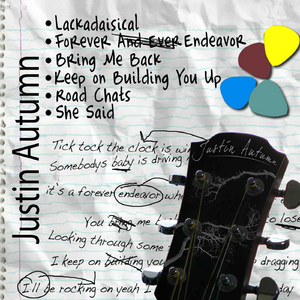 Justin Autumn
• Lackadaisical
• Forever And Ever Endeavor
• Bring Me Back
• Keep on Building You Up
• Road Chats
• She Said
Justin Autumn
Tick tock the clock is
Somebodys baby is driving
it's a forever endeavor
You bring me to lose
Looking through some
I keep on building you dragging
I'll be rocking on yeah I load